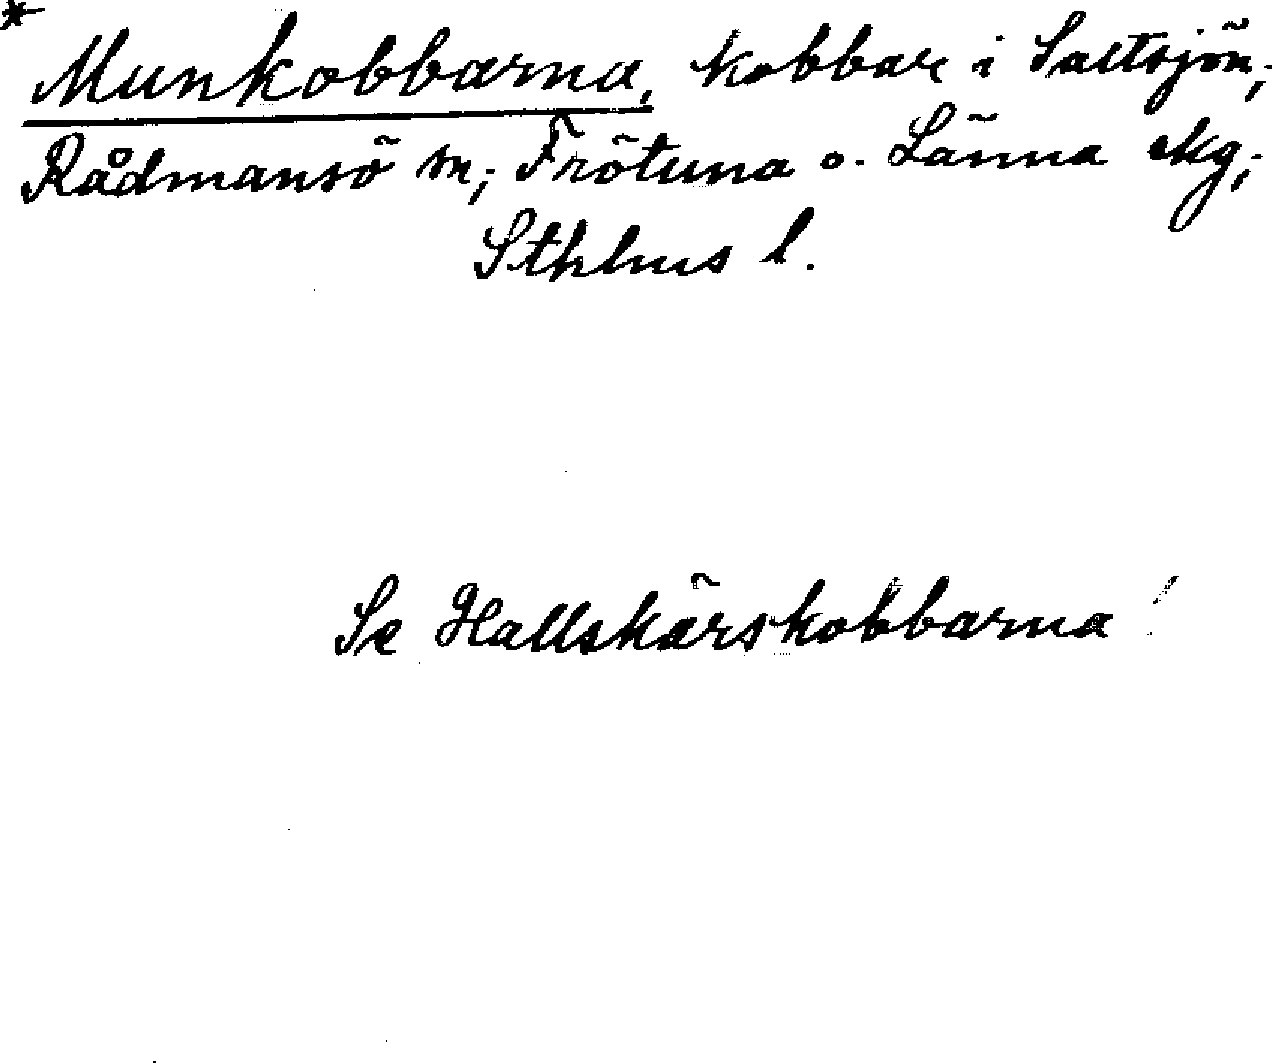 * Munkobbarna, kobbar i Saltsjön;
Rådmansö sn; Frötuna o. Länna skg;
Sthlms l.
Se Hallskärskobbarna!